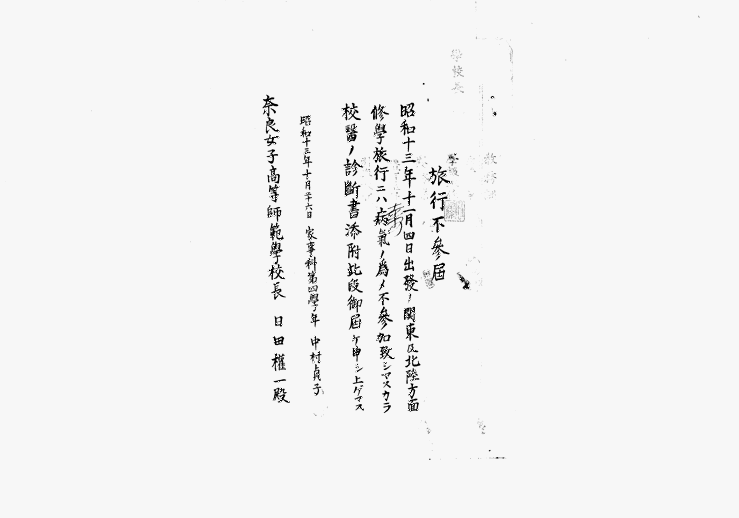 學校長
旅行不參屆
昭和十三年十一月四日出發ノ関東及北陸方面
修學旅行ニハ病氣ノ爲メ不參加致シマスカラ
校醫ノ診斷書添附此段御屆ケ申シ上ゲマス
昭和十三年十月廿六日 家事科第四學年 中村貞子
奈良女子高等師範學校長 日田權一殿